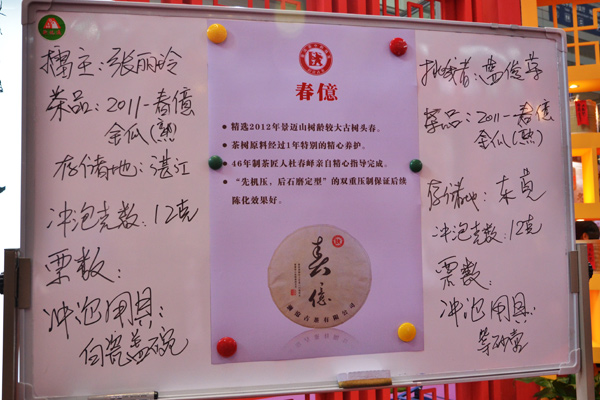 擂主：张丽玲
茶品：2011-春億
金瓜(熟)
存储地：湛江
冲泡克数：12克
票数：
冲泡用具：
白瓷盖碗
春億
● 精选2012年景迈山树龄较大古树头春。
● 茶树原料经过1年特别的精心养护。
● 46年制茶匠人杜春峄亲自精心指导完成。
● “先机压，后石磨定型”的双重压制保证后续
陈化效果好。
春億
澜沧古茶有限公司
挑战者：孟俊草
茶品：2011-春億
金瓜(熟)
存储地：东莞
冲泡克数：12克
票数：
冲泡用具：